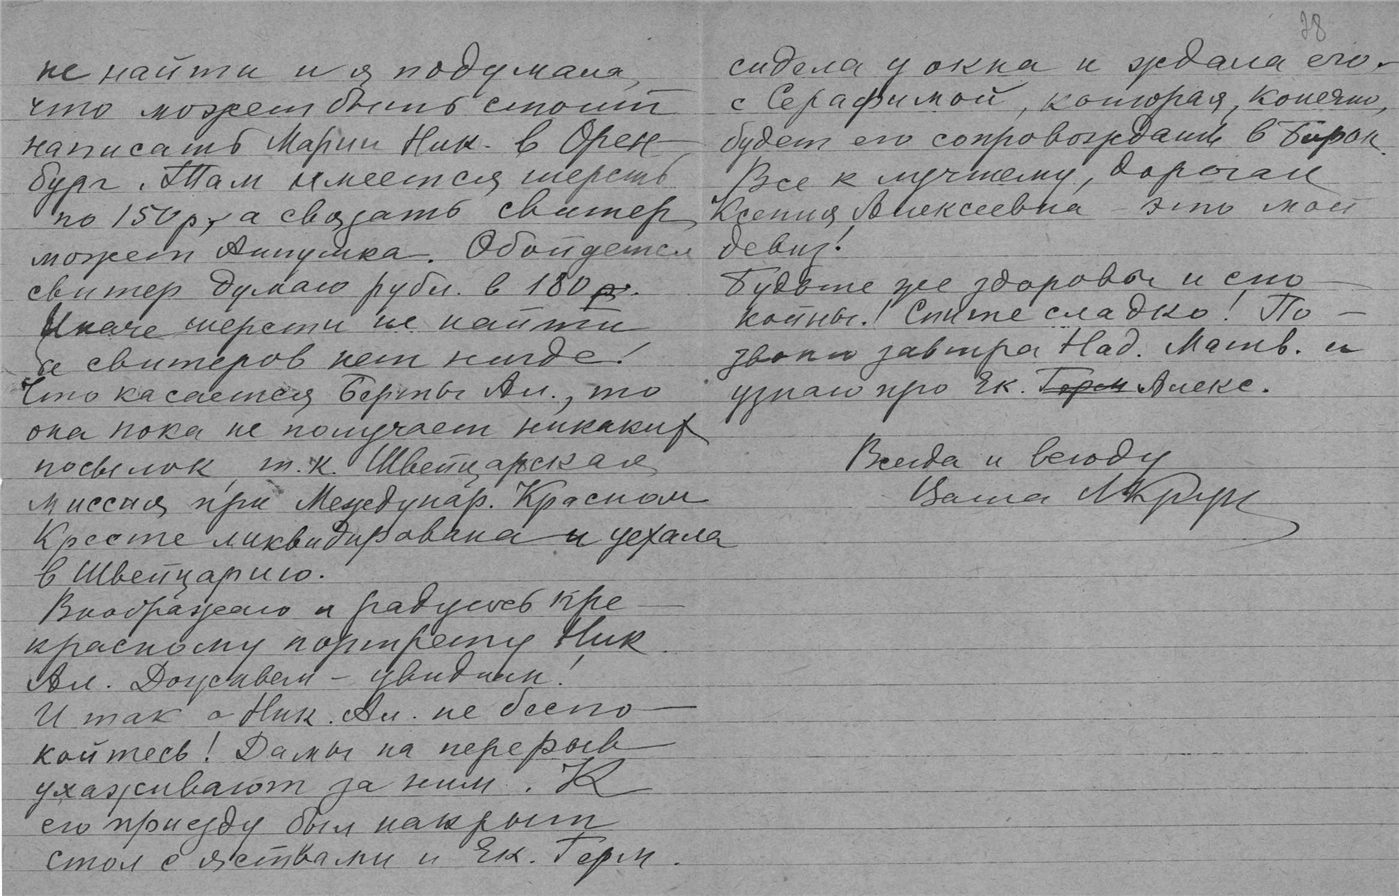 38
не найти и я подумала,
что может быть стоит
написать Марии Ник. в Орен-
бург. Там имеется шерсть
по 150 р, а связать свитер
может Аннушка. Обойдется
свитер думаю рубл. в 180 р.
Иначе шерсти не найти
а свитеров нет нигде!
Что касается Берты Ал., то
она пока не получает никаких
посылок т.к. Швейцарская
миссия при Междунар. Красном
Кресте ликвидирована и уехала
в Швейцарию.
Воображаю и радуюсь пре-
красному портрету Ник.
Ал. Доживем – увидим!
И так о Ник. Ал. не беспо-
койтесь! Дамы на перерыв
ухаживают за ним. К
его приезду был накрыт
стол с яствами и Ек. Герм.
сидела у окна и ждала его
с Серафимой, которая, конечно,
будет его сопровождать в
Все к лучшему, дорогая
Ксения Алексеевна – это мой
девиз!
Будьте же здоровы и спо-
койны! Спите сладко! По-
звоню завтра Над. Матв. и
узнаю про Ек. Герм Алекс.
Всегда и всюду
Ваша